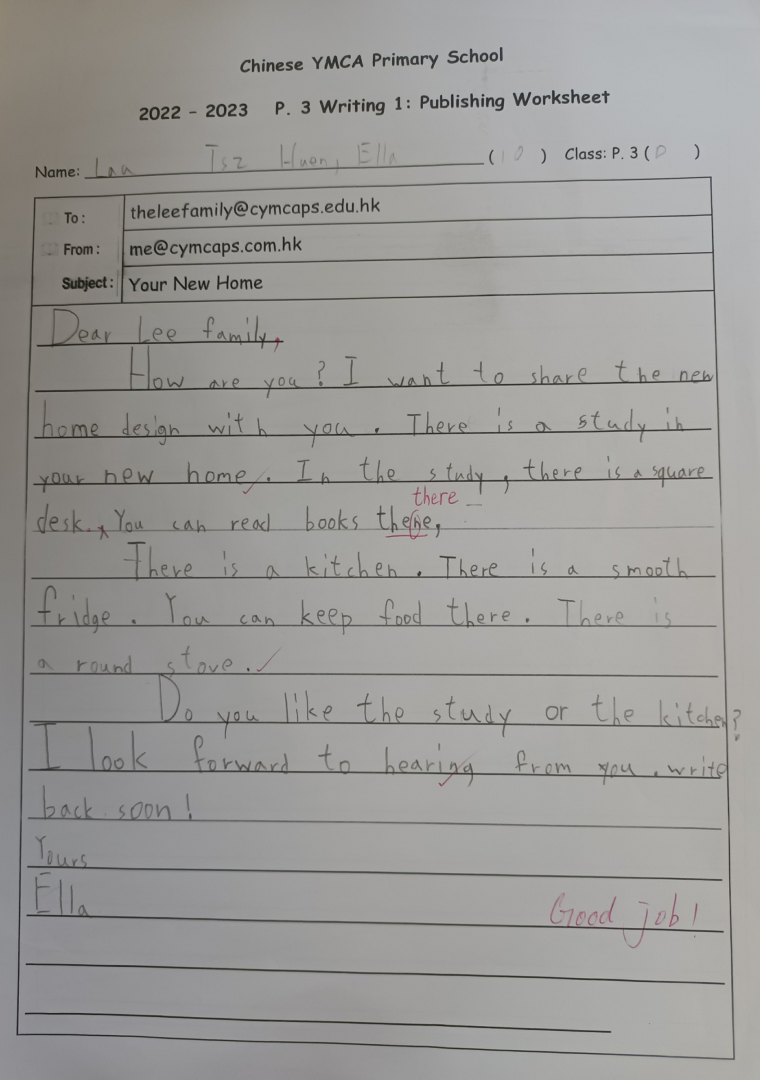 Chinese YMCA Primary School
2022 - 2023 P. 3 Writing 1: Publishing Worksheet
Name: Lau Tsz Huen, Ella (10) Class: P. 3 (D)
To: theleefamily@cymcaps.edu.hk
From: me@cymcaps.com.hk
Subject: Your New Home
Dear Lee family,
How are you? I want to share the new
home design with you. There is a study in
your new home. In the study, there is a square
there
desk. You can read books thene,
There is a kitchen. There is a smooth
fridge. You can keep food there. There is
a round stove.
Do you like the study or the kitchen?
I look forward to hearing from you. write
back soon!
Yours
Ella
Good job!